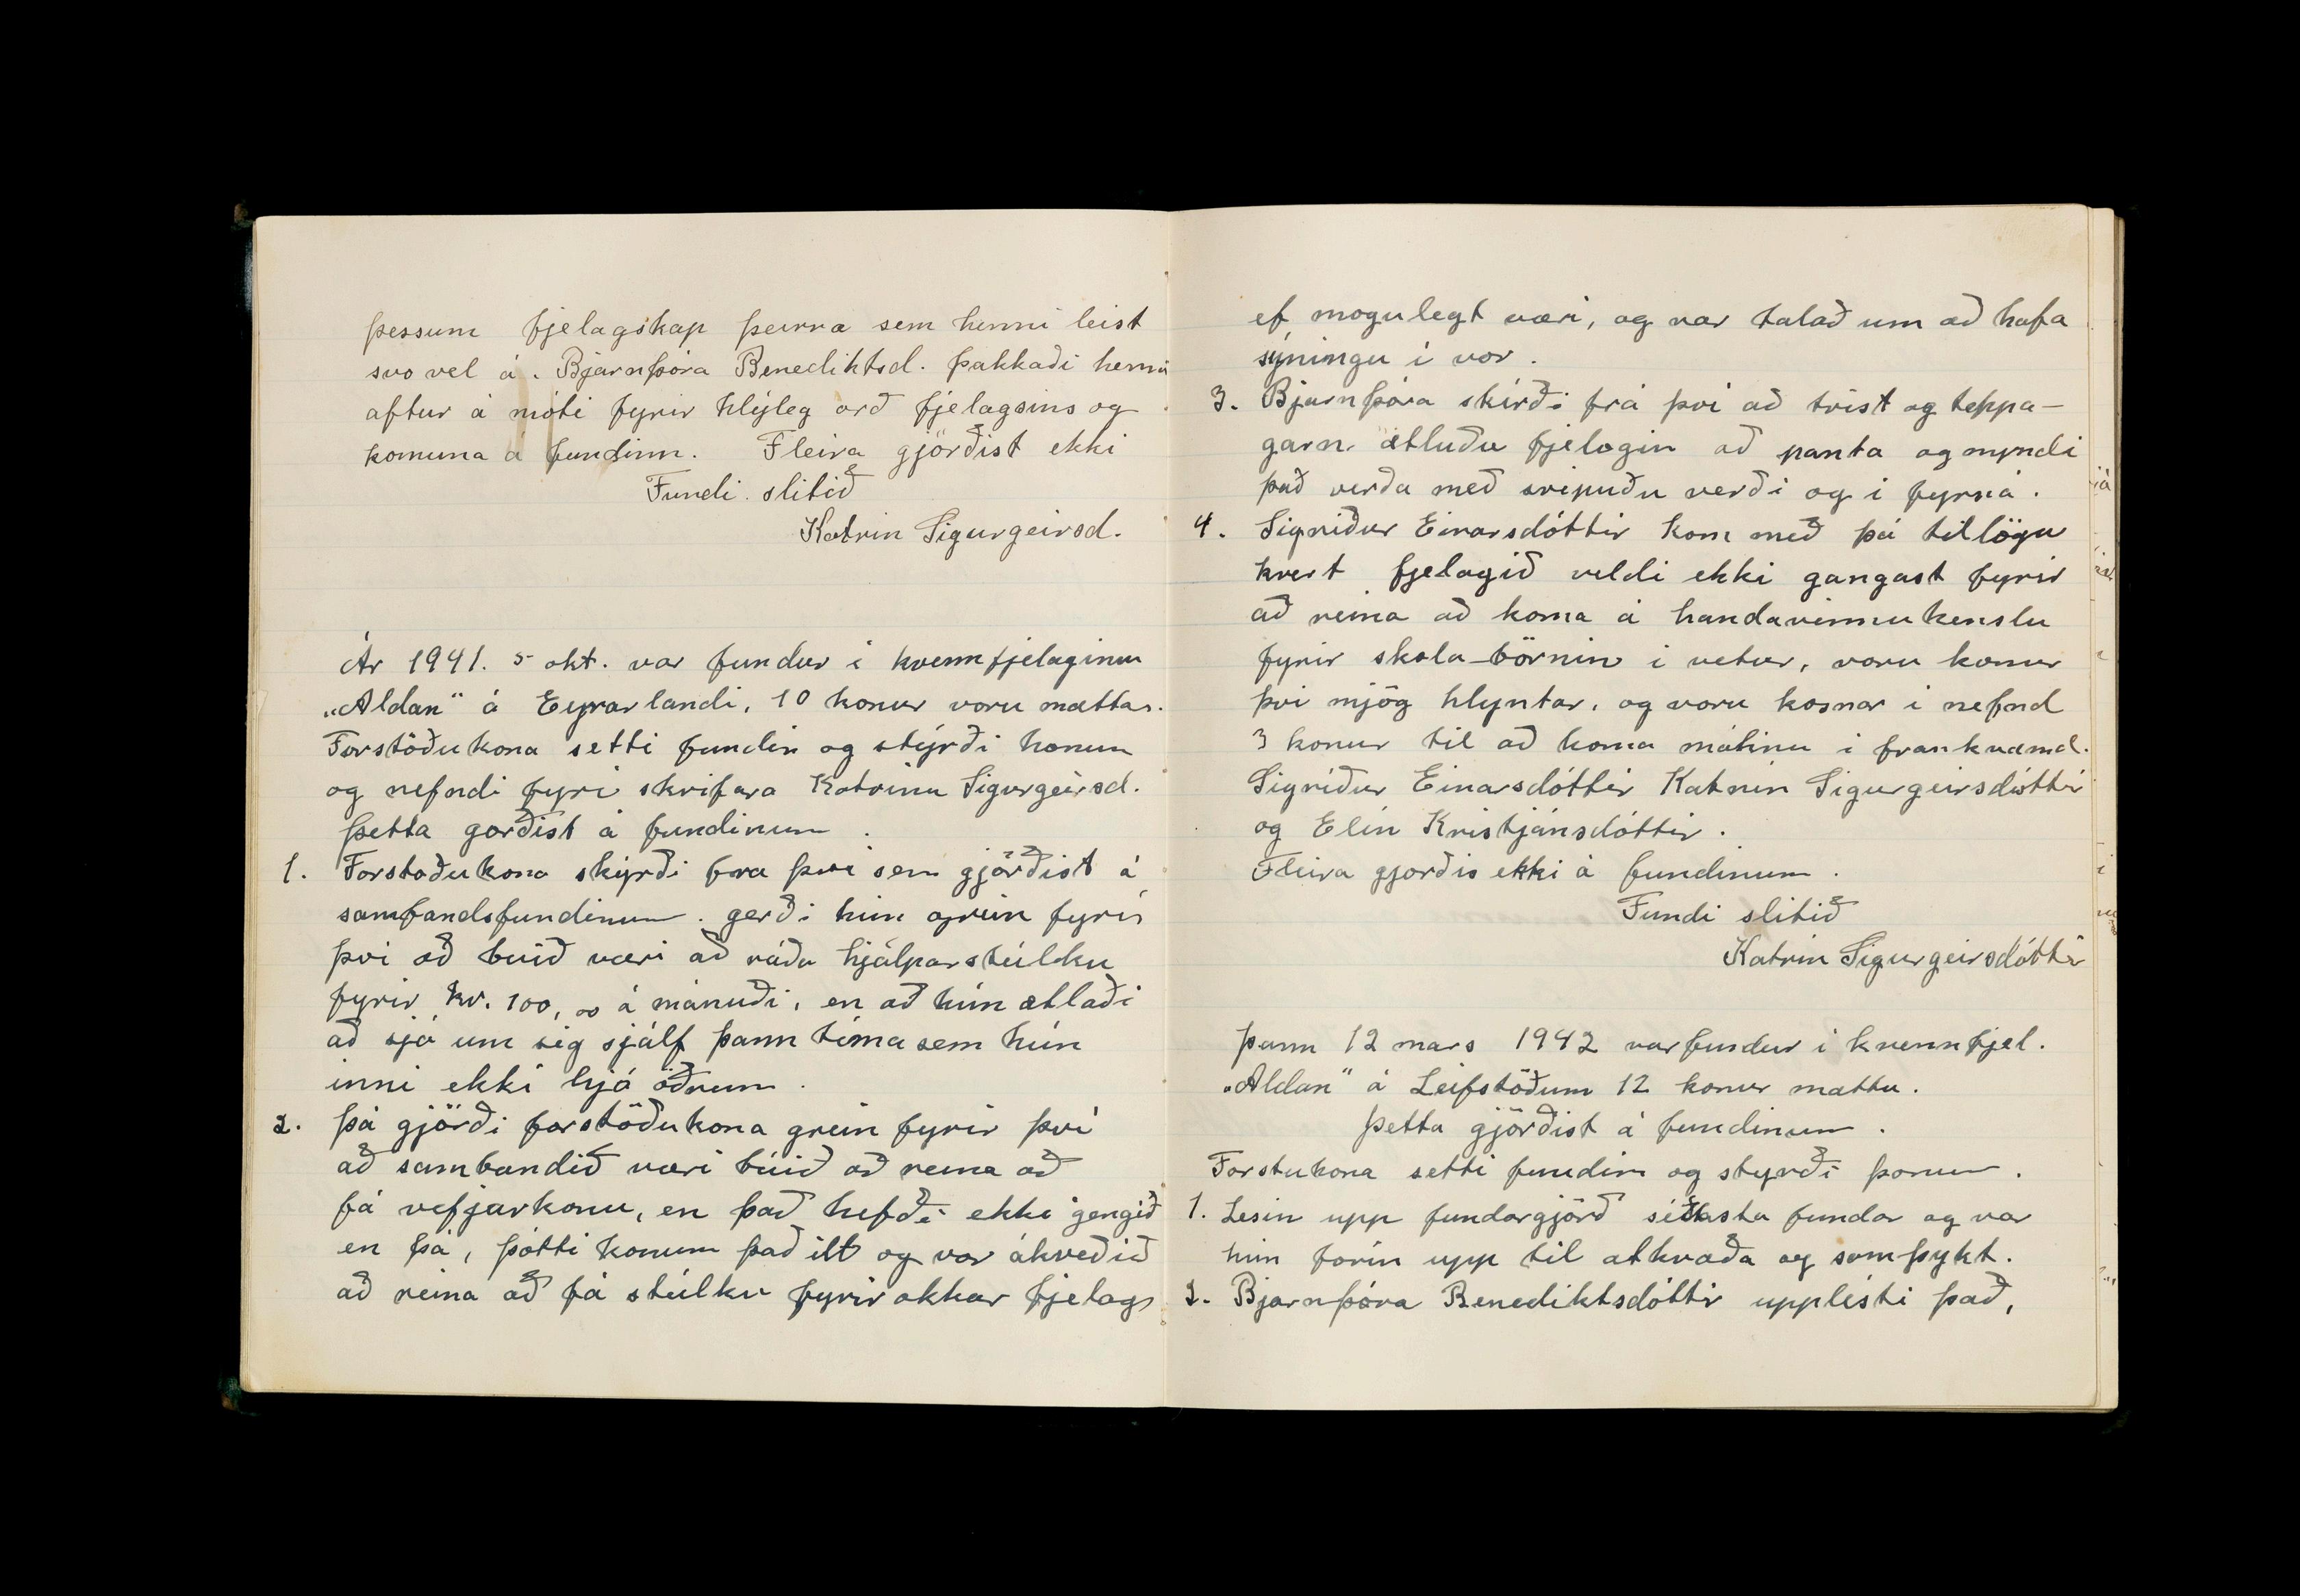 þessum fjelagskap þeirra sem henni leist
svo vel á. Bjarnþóra Benediktsd. þakkaði henni
aftur á móti fyrir hlýleg orð fjelagsins og
komuna á fundinn. Fleira gjörðist ekki
Fundi slitið
Katrin Sigurgeirsd.
Ár 1941. 5 okt. var fundur i kvennfjelaginu
„Aldan" á Eyrarlandi, 10 konur voru mættar.
Forstöðukona setti fundin og stýrði honum
og nefndi fyri skrifara Katrinu Sigurgeirsd.
Þetta gorðist á fundinum.
1. Forstoðukona skýrði fra þvi sem gjörðist á
sambandsfundinum. gerði hún grein fyrir
þvi að búið væri að ráða hjálparstúlku
fyrir kr. 100,00 á mánuði, en að hún ætlaði
að sjá um sig sjálf þann tíma sem hún
inni ekki hjá öðrum.
2. Þá gjörði forstöðukona grein fyrir því
að sambandið væri búið að reina að
fá vefjarkonu, en það hefði ekki gengið
en þá, þótti konum það ilt og var ákveðið
að reina að fá stúlku fyrir okkar fjelag
ef mogulegt væri, og var talað um að hafa
sýningu i vor.
3. Bjarnþóra skírði frá þvi að tvist og teppa-
garn ætluðu fjelogin að panta og myndi
það verða með svipuðu verði og i fyrra.
4. Sigriður Einarsdóttir kom með þá tillögu
hvert fjelagið veldi ekki gangast fyrir
að reina að koma á handavinnukenslu
fyrir skola-börnin i vetur, voru konur
þvi mjög hlyntar, og voru kosnar i nefnd
3 konur til að koma málinu i framkvæmd.
Sigriður Einarsdóttir Katrín Sigurgeirsdóttir
og Elín Kristjánsdóttir.
Fleira gjorðis ekki á fundinum.
Fundi slitið
Katrín Sigurgeirsdóttir
Þann 12 mars 1942 var fundur i kvennfjel.
„Aldan" á Leifstöðum 12 konur mættu.
Þetta gjörðist á fundinum.
Forstukona setti fundin og styrði þonum.
1. Lesin upp fundargjörð síðasta fundar og var
hún forin upp til atkvæða og samþykt.
2. Bjarnþóra Benediktsdóttir upplésti það,